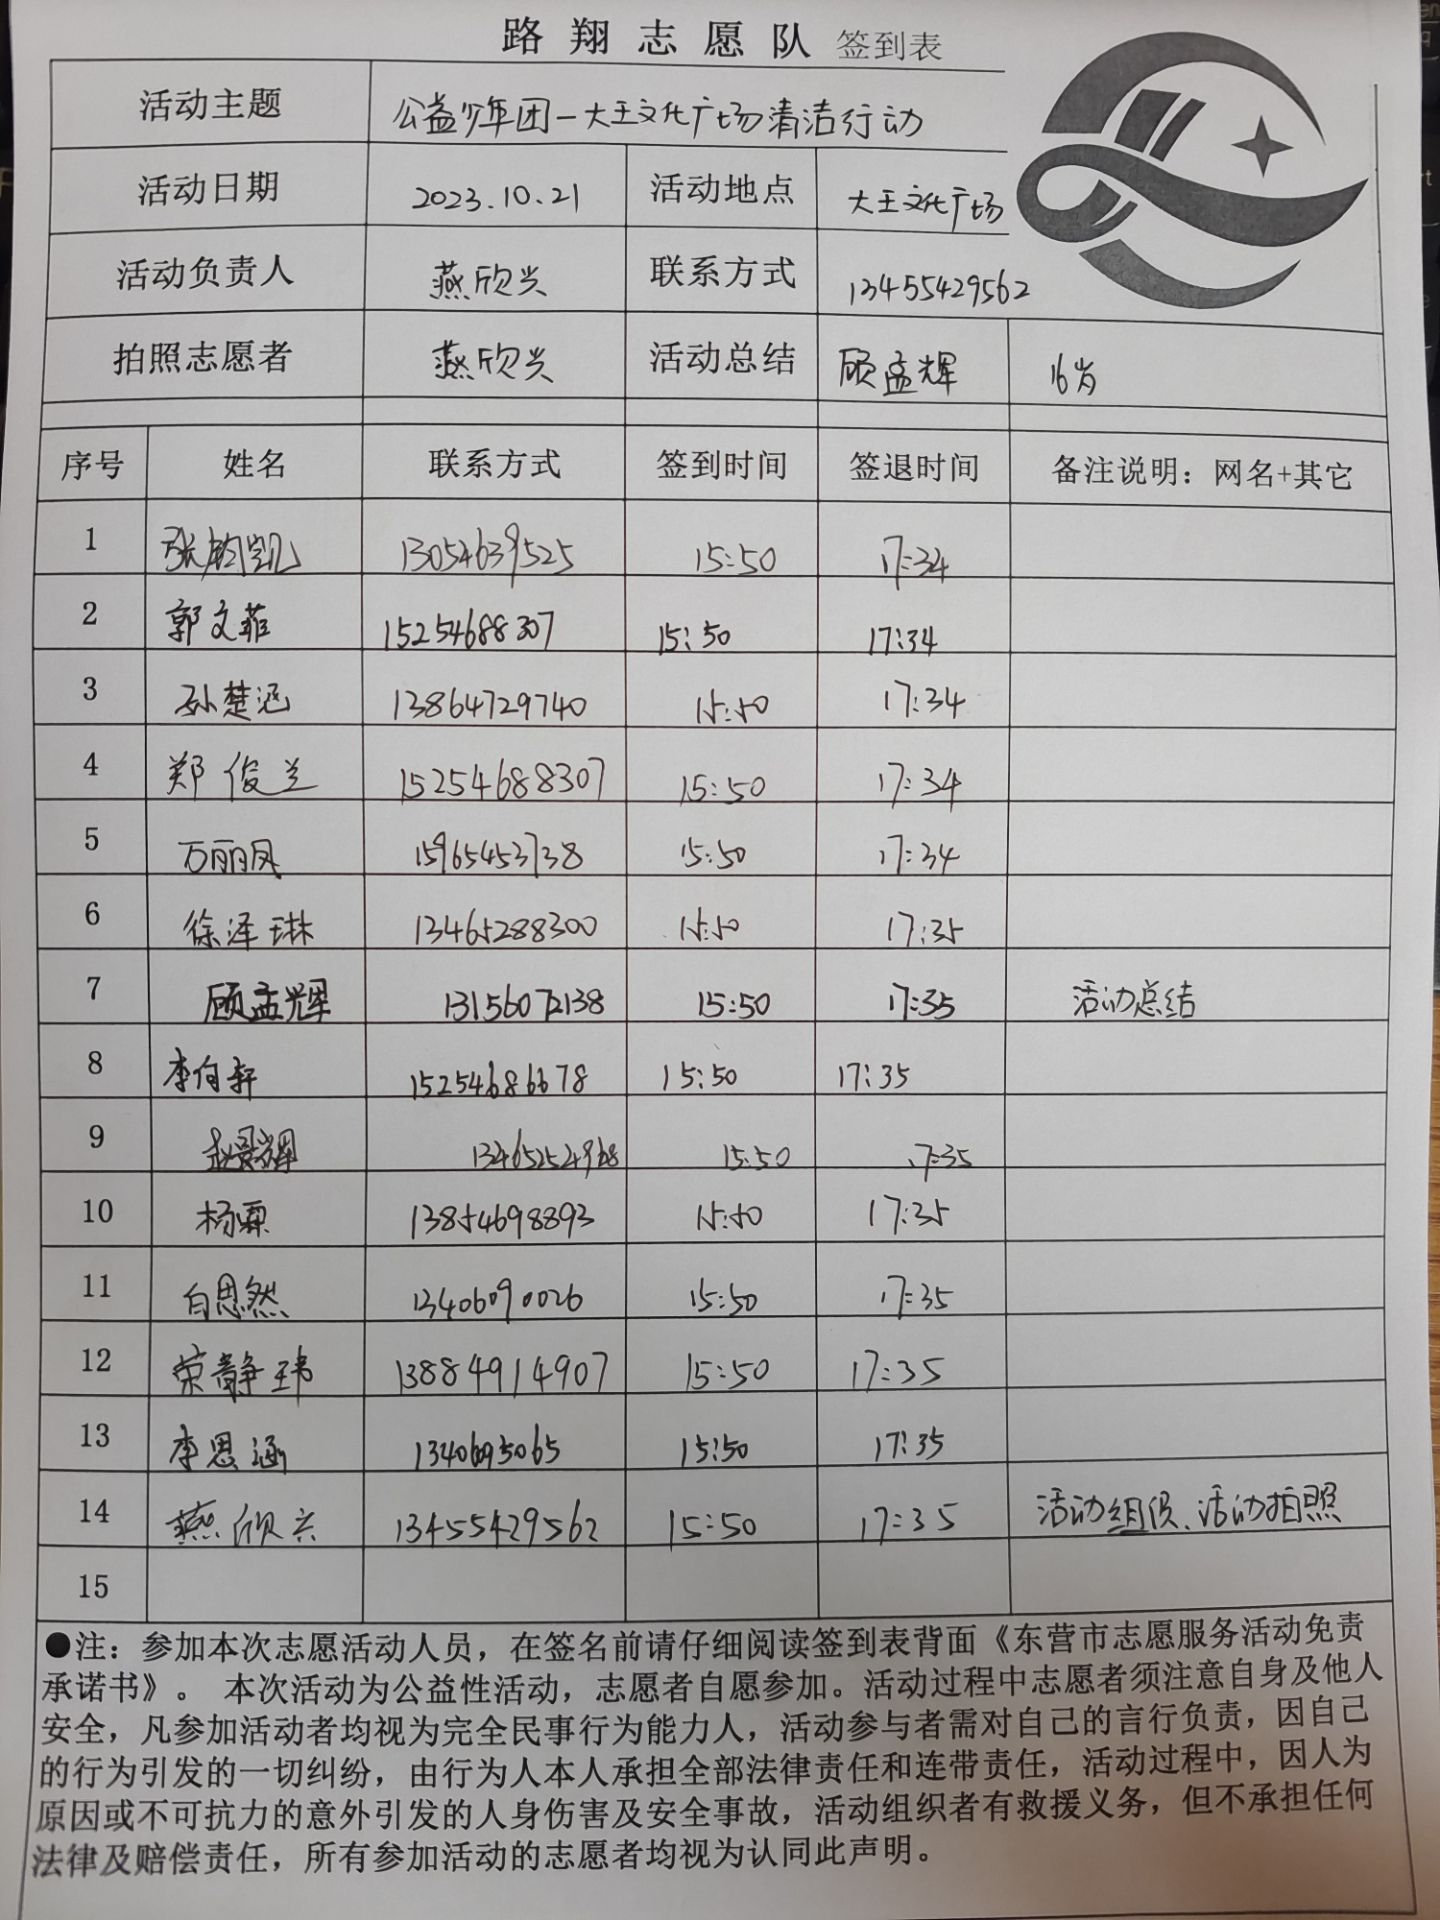 路翔志愿队 签到表
活动主题 公益少年团-大王文化广场清洁行动
活动日期 2023.10.21 活动地点 大王文化广场
活动负责人 燕欣兴 联系方式 13455429562
拍照志愿者 燕欣兴 活动总结 顾孟辉 16岁
序号 姓名 联系方式 签到时间 签退时间 备注说明：网名+其它
1 张钧凯 13054639525 15:50 17:34
2 郭文菲 15254688307 15:50 17:34
3 孙楚涵 13864729740 15:50 17:34
4 郑俊兰 15254688307 15:50 17:34
5 万丽凤 15965453738 15:50 17:34
6 徐泽琳 13465288300 15:50 17:35
7 顾孟辉 13156072138 15:50 17:35 活动总结
8 李伯轩 15254686678 15:50 17:35
9 赵景辉 15:50 17:35
10 13854698893 15:50 17:35
11 白思然 13406090026 15:50 17:35
12 荣静玮 13884914907 15:50 17:35
13 李思涵 15:50 17:35
14 燕欣兴 13455429562 15:50 17:35 活动组织、活动拍照
15
●注：参加本次志愿活动人员，在签名前请仔细阅读签到表背面《东营市志愿服务活动免责
承诺书》。 本次活动为公益性活动，志愿者自愿参加。活动过程中志愿者须注意自身及他人
安全，凡参加活动者均视为完全民事行为能力人，活动参与者需对自己的言行负责，因自己
的行为引发的一切纠纷，由行为人本人承担全部法律责任和连带责任，活动过程中，因人为
原因或不可抗力的意外引发的人身伤害及安全事故，活动组织者有救援义务，但不承担任何
法律及赔偿责任，所有参加活动的志愿者均视为认同此声明。